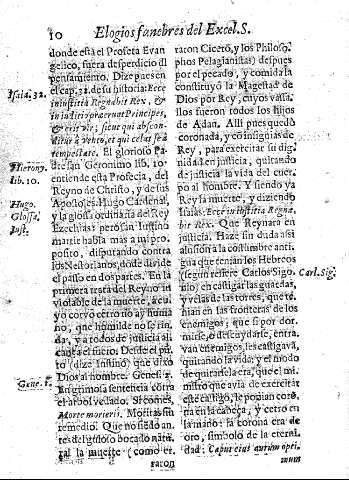 10 Elogios funebres del Excel. S.
donde està el Profeta Evan
gelico, fuera desperdicio del
pensamiento. Dize pues en
el cap. 32. de su historia: Ecce
in iustitia Regnabit Rex, &
in iudicio præerunt Principes,
& erit vir, sicut qui abscon-
ditur à vento, et qui celat se à
tempestate. El glorioso Pa-
dre san Geronimo lib. 10.
entiende esta Profecia, del
Reyno de Christo, y de sus
Apostoles: Hugo Cardenal,
y la glossa ordinaria del Rey
Ezechias: pero san Iustino
martir habla mas a mi pro-
posito, disputando contra
los Nestorianos, desde divide
el passo en dos partes. En la
primera trata del Reyno in
violable de la muerte, a cu-
yo corvo cetro no ay huma
no, que humilde no se rin-
da, y a todos de justicia al-
cança el fuero: Desde el pũ
to (dize Iustino) que dixo
Dios al hombre. Genes. 2.
En grimosa sentencia contra
el arbol vedado. Si comes,
Morte morieris. Moriràs sin
remedio. Que no sido an-
tes del goloso bocado natu-
ral la muerte (como er-
raron
raron Cicero, y los Philoso-
phos Pelagianistas) despues
por el pecado, y comida la
constituyò la Magestad de
Dios por Rey, cuyos vassa-
llos fueron todos los hijos
de Adan. Alli pues quedò
coronada, y co insignias de
Rey, para exercitar su dig
nidad en justicia, quitando
de justicia la vida del cuer-
po al hombre. Y siendo ya
Rey la muerte, y diziendo
Isaias: Ecce in iustitia Regna-
bit Rex. Que Reynarà en
justicia. Haze sin duda assi
alusion a la costumbre anti-
gua que tenian los Hebreos
(segun refiere Carlos Sigo.
en castigar las guardas,
y velas de las torres, que te-
nian en las fronteras de los
enemigos; que si por dor-
mirse, o descuydarse, entra-
van enemigos, les castigavã,
quitando la vida; y el modo
de quitarsela era, que el mi-
nistro que avia de exercitar
este castigo, le ponian coro-
na en la cabeça, y cetro en
la mano: la corona era de
oro, simbolo de la eterni-
dad: Caput eius aurum opti-
mum
Isaia. 32.
Hierony.
lib. 10.
Hugo.
Glossa.
Iust.
Gene. 2.
Carl. Sig.